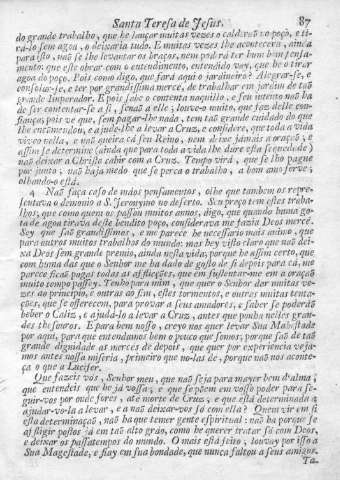 Santa Teresa de Jesus. 87
do grande trabalho, que he lançar muitas vezes o caldeirão no poço, e ti-
rá-lo sem agoa, o deixaria tudo. E muitas vezes lhe acontecerá, ainda
para isto, não se lhe levantar os braços, nem poderá ter hum bom pensa-
mento: que este obrar com o entendimento, entendido vay, que he o tirar
agoa do poço. Pois como digo, que fará aqui o jardineiro? Alegrar-se, e
consolar-se, e ter por grandissima mercé, de trabalhar em jardim de taõ
grande Imperador. E pois sabe o contenta naquillo, e seu intento não ha
de ser contentar-se a si, senaõ a elle; louve-o muito, que faz delle con-
fiança; pois vé que, sem pagar-lhe nada, tem taõ grande cuidado do que
lhe encomendou, e ajude-lhe a levar a Cruz, e considere, que toda a vida
viveo nella, e naõ queira cá seu Reino, nem deixe jámais a oração; e
assim se determine (ainda que para toda a vida lhe dure esta sequedade)
naõ deixar a Christo cahir com a Cruz. Tempo virá, que se lho pague
por junto; naõ haja medo que se perca o trabalho, a bom amo serve;
olhando-o está.
4 Naõ faça caso de máos pensamentos, olhe que tambem os repre-
sentava o demonio a S. Jeronymo no deserto. Seu preço tem estes traba-
lhos, que como quem os passou muitos annos, digo, que quando huma go-
ta de agoa tirava deste bendito poço, considerava me fazia Deos mercé.
Sey que saõ grandissimos, e me parece he necessario mais animo, que
para outros muitos trabalhos do mundo: mas hey visto claro que naõ dei-
xa Deos sem grande premio, ainda nesta vida; porque he assim certo, que
com huma das que o Senhor me ha dado de gosto de si depois para cá, me
parece ficaõ pagas todas as afflicções, que em sustentar-me em a oração
muito tempo passey. Tenho para mim, que quer o Senhor dar muitas ve-
zes ao principio, e outras ao fim, estes tormentos, e outras muitas tenta-
ções, que se offerecem, para provar a seus amadores, e saber se poderáõ
beber o Caliz, e ajudá-lo a levar a Cruz, antes que ponha nelles gran-
des thesouros. E para bem nosso, creyo nos quer levar Sua Magestade
por aqui, para que entendamos bem o pouco que somos; porque saõ de taõ
grande dignidade as mercés de depois, que quer por experiencia veja-
mos antes nossa miseria, primeiro que no-las dé, porque naõ nos aconte-
ça o que a Lucifer.
Que fazeis vós, Senhor meu, que naõ seja para mayor bem d'alma,
que entendeis que he já vossa, e que se põem em vosso poder para se-
guir-vos por onde fores, até morte de Cruz, e que está determinada a
ajudar-vo-la a levar, e a naõ deixar-vos só com ella? Quem vir em si
esta determinação, naõ ha que temer gente espiritual: naõ ha porque se
affligir postos já em taõ alto gráo, como he querer tratar só com Deos,
e deixar os passatempos do mundo. O mais está feito, louvay por isso a
Sua Magestade, e fiay em sua bondade, que nunca faltou a seus amigos.
Ta-